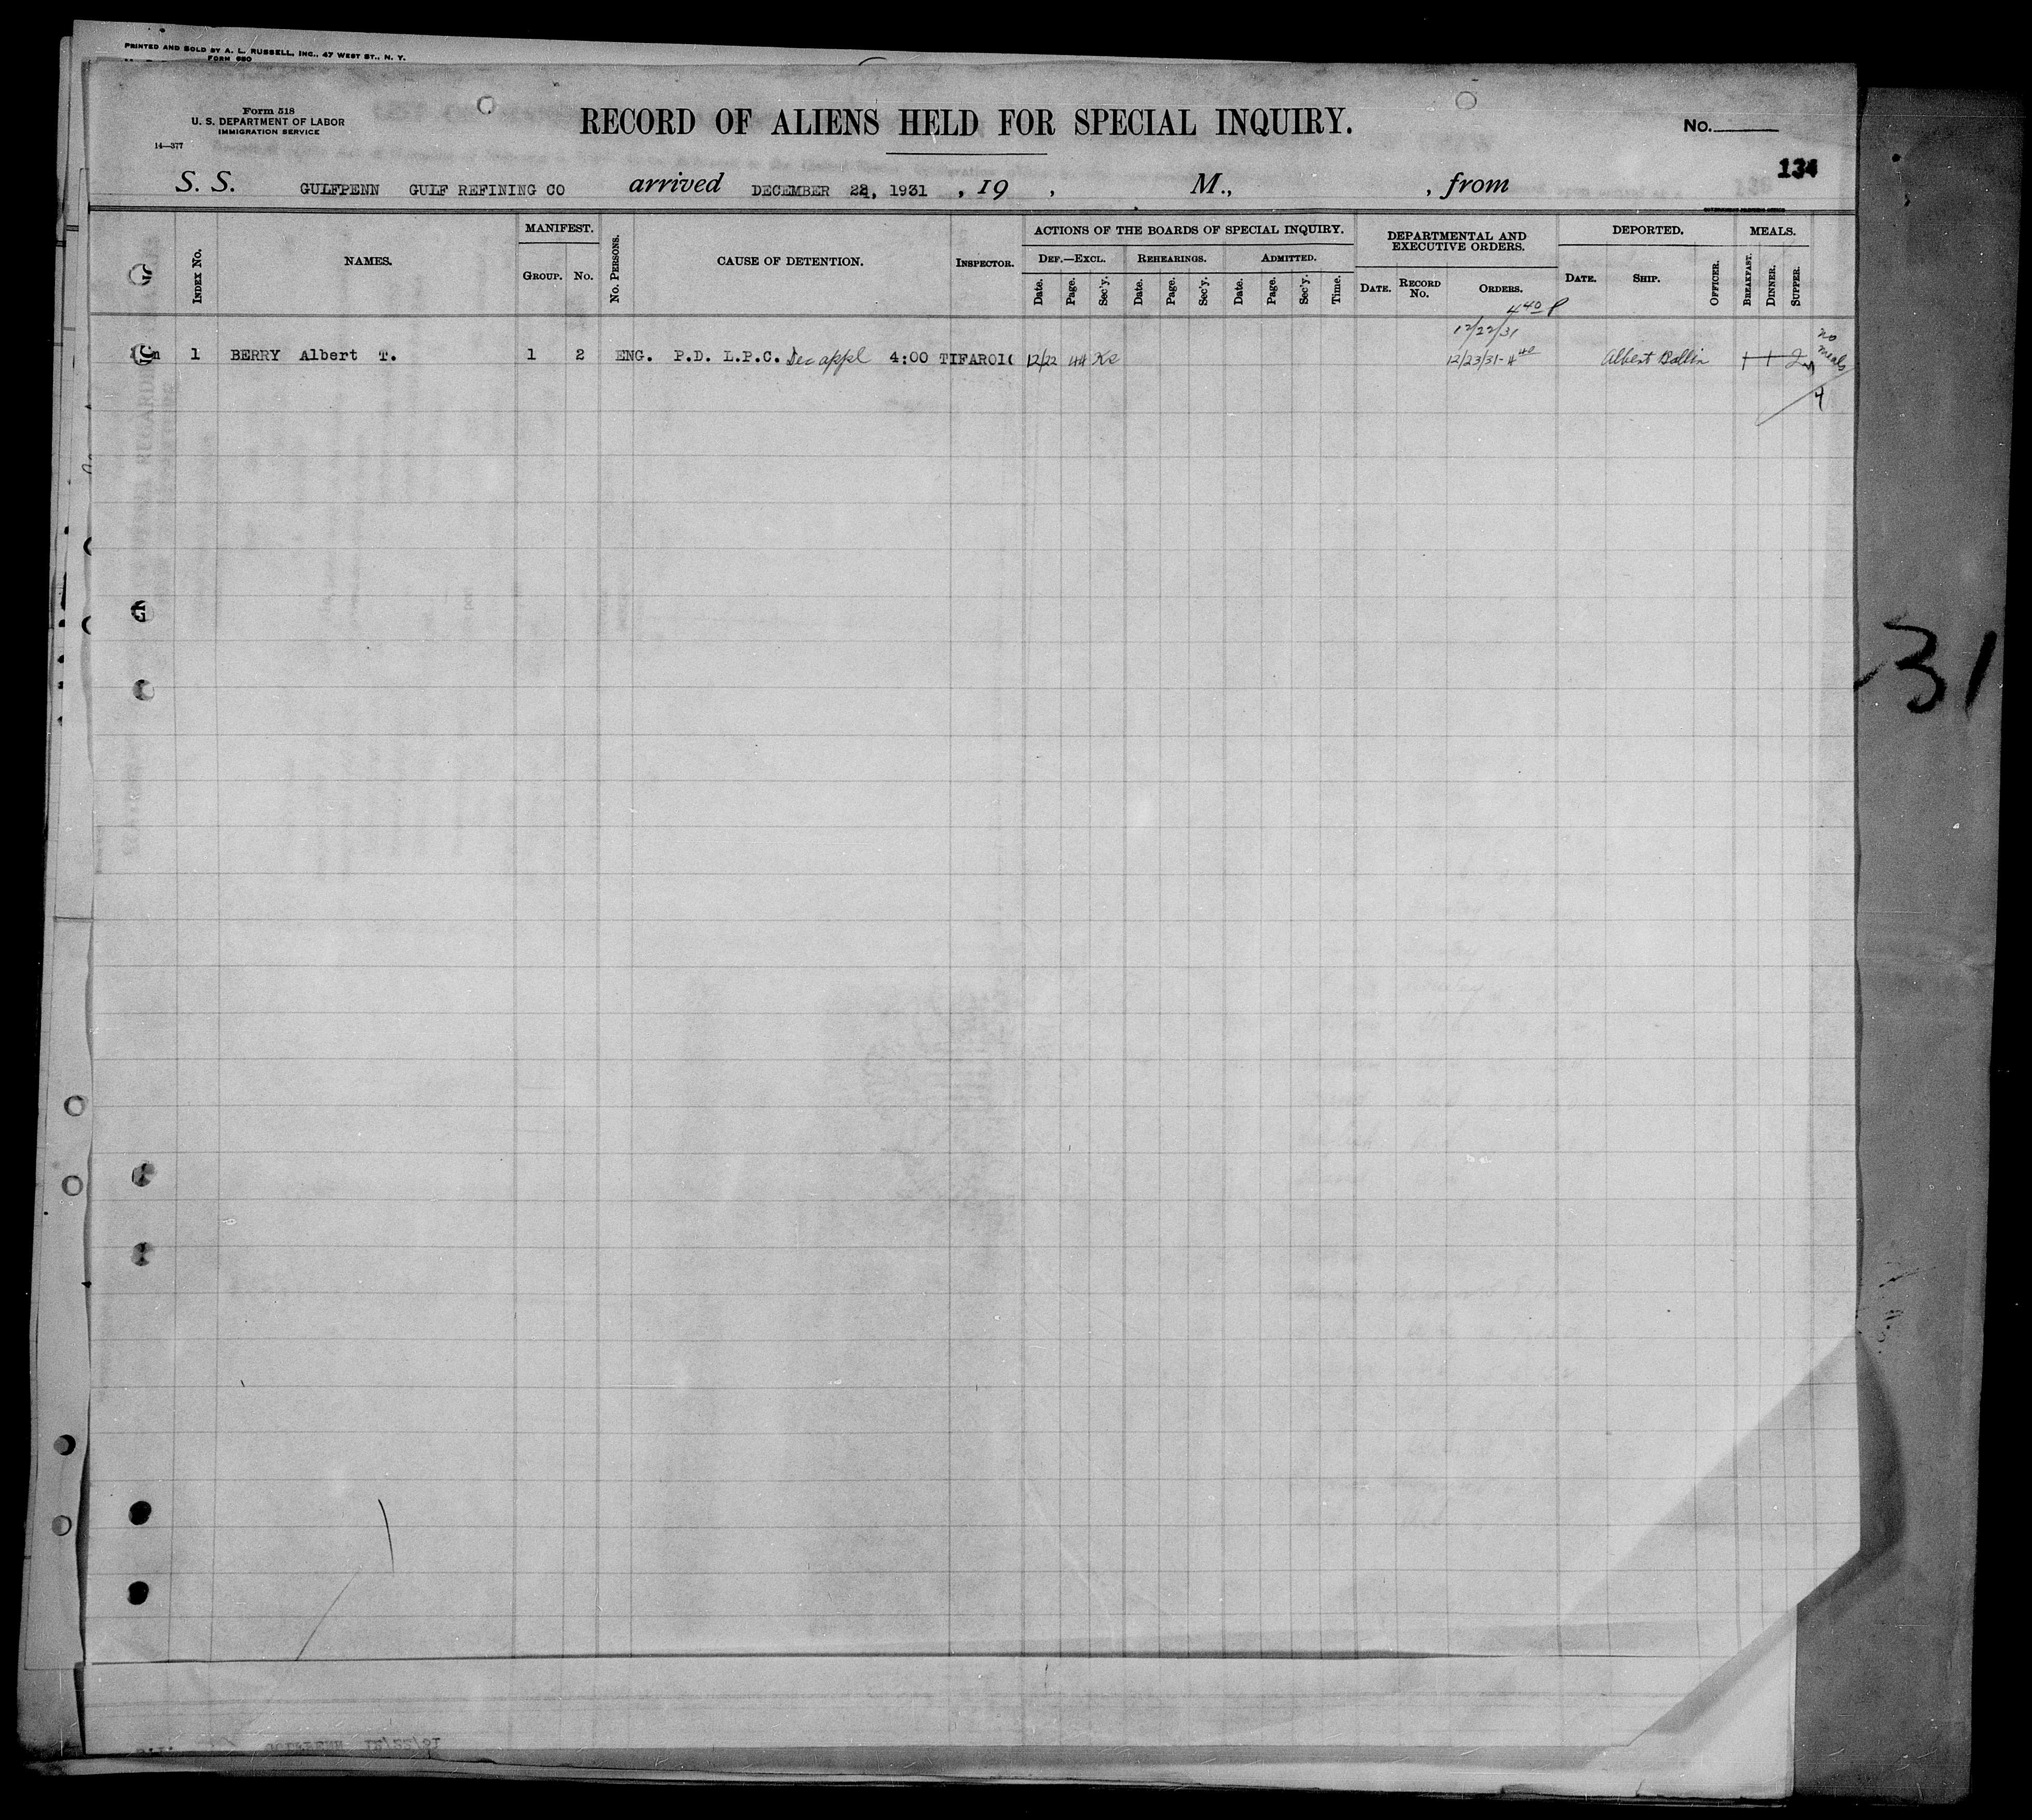 PRINTED AND SOLD BY A. L. RUSSELL, INC., 47 WEST ST., N. Y.
FORM 630
Form 518
U. S. DEPARTMENT OF LABOR
IMMIGRATION SERVICE
14—377
RECORD OF ALIENS HELD FOR SPECIAL INQUIRY.
No.
134
S. S. GULFPENN GULF REFINING CO arrived DECEMBER 22, 1931 , 19 , M., , from
INDEX No.
NAMES.
MANIFEST.
GROUP. No.
No. PERSONS.
CAUSE OF DETENTION.
INSPECTOR.
ACTIONS OF THE BOARDS OF SPECIAL INQUIRY.
DEF.—EXCL. REHEARINGS. ADMITTED.
Date. Page. Sec'y. Date. Page. Sec'y. Date. Page. Sec'y. Time.
DEPARTMENTAL AND EXECUTIVE ORDERS.
DATE. RECORD No. ORDERS.
DEPORTED.
DATE. SHIP. OFFICER.
MEALS.
BREAKFAST. DINNER. SUPPER.
4 40 P
12/22/31
1 BERRY Albert T. 1 2 ENG. P.D. L.P.C. appl 4:00 TIFARO 12/22 44 12/23/31 Albert Ballin 1 1 2
no meals
4
31
GULFPENN 12/22/31